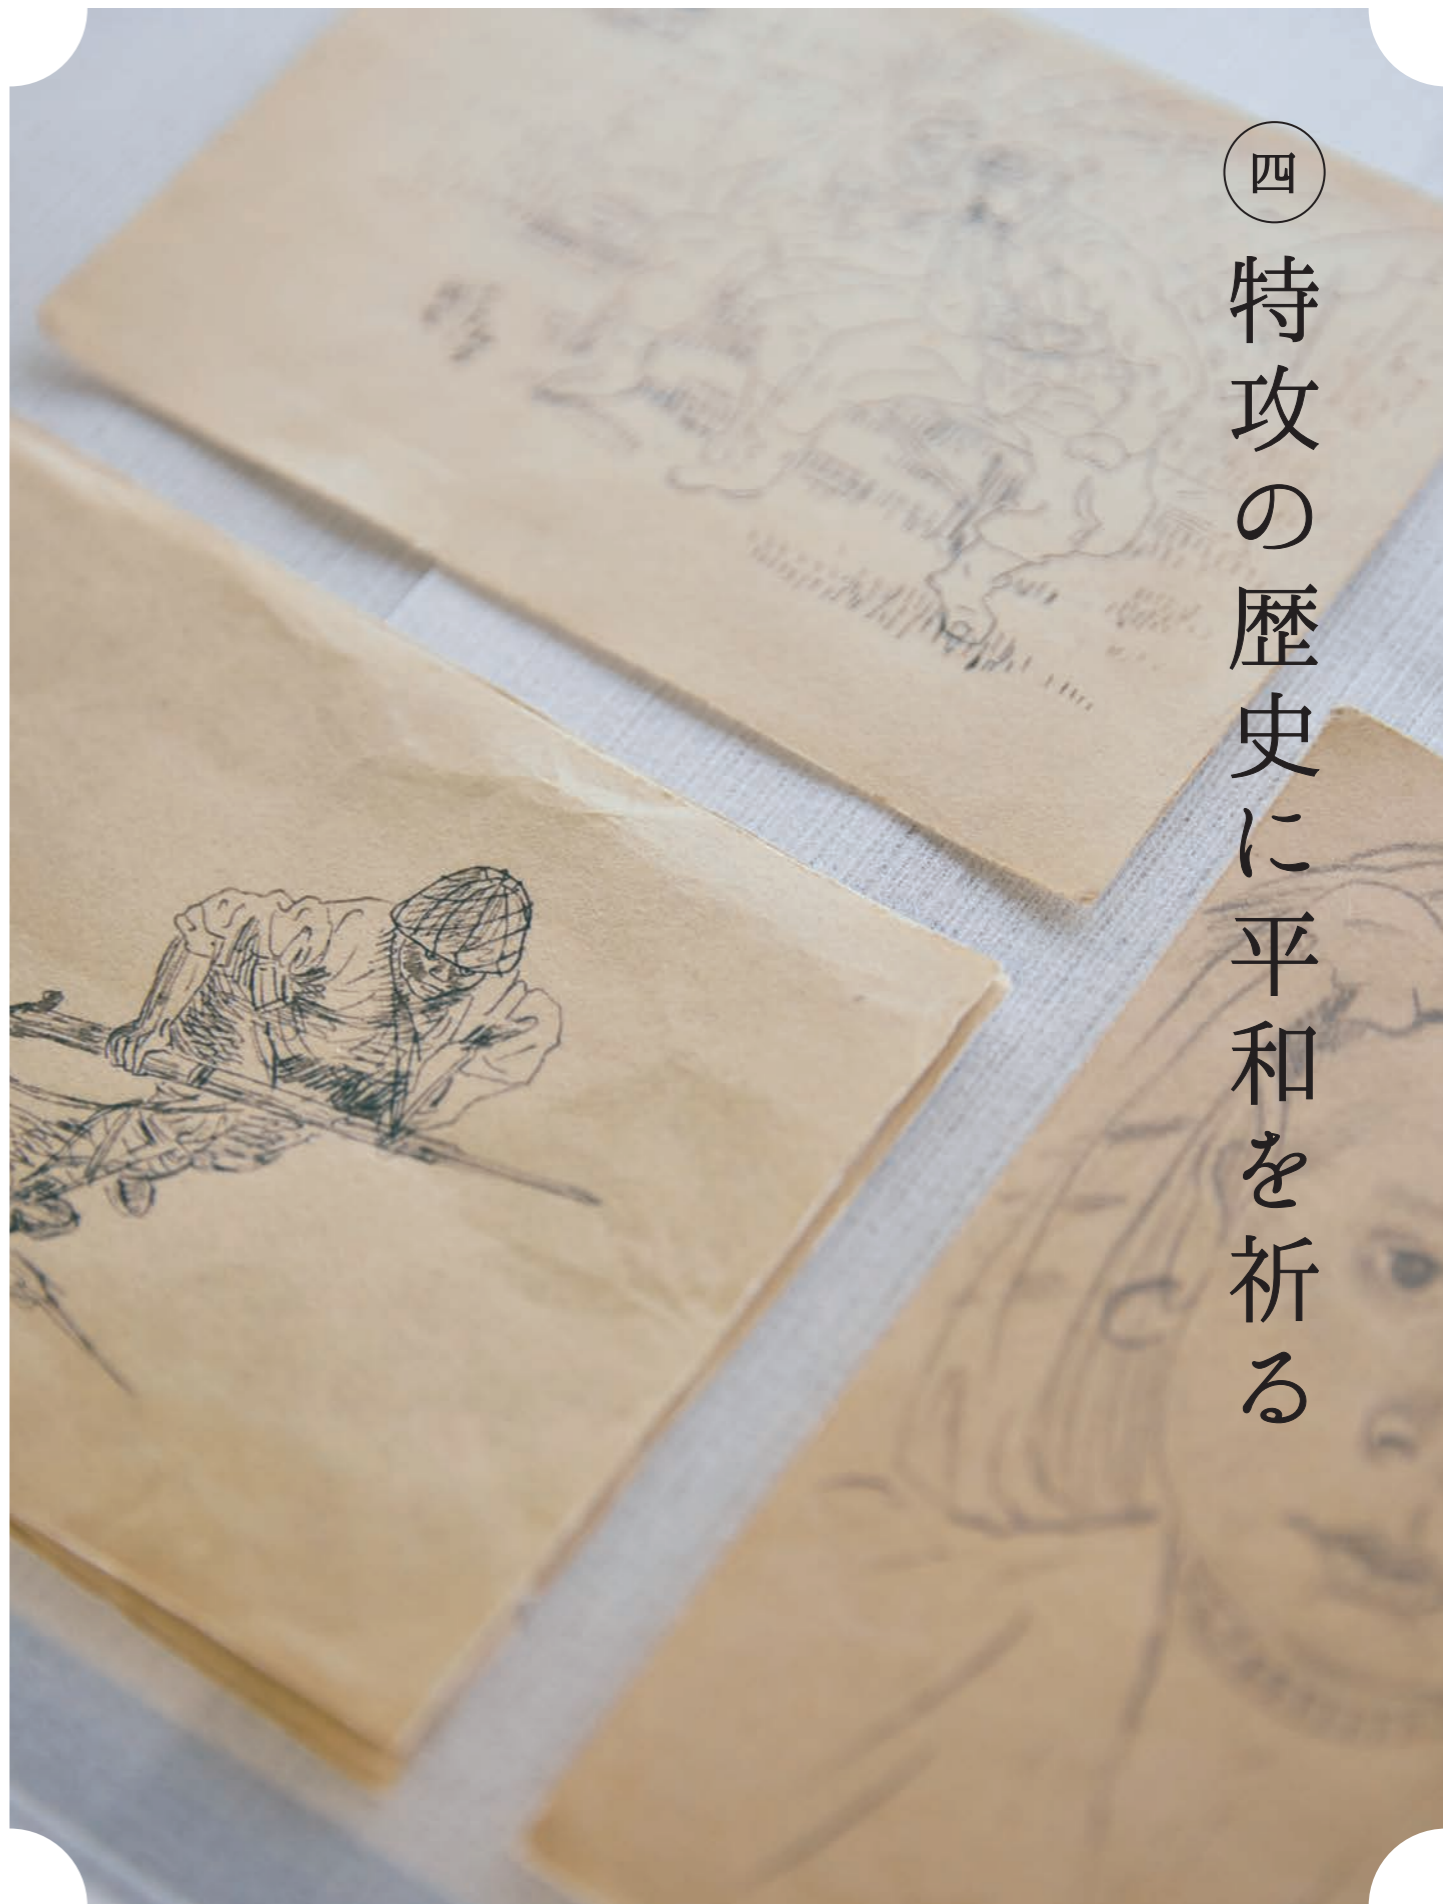 四
特攻の歴史に平和を祈る